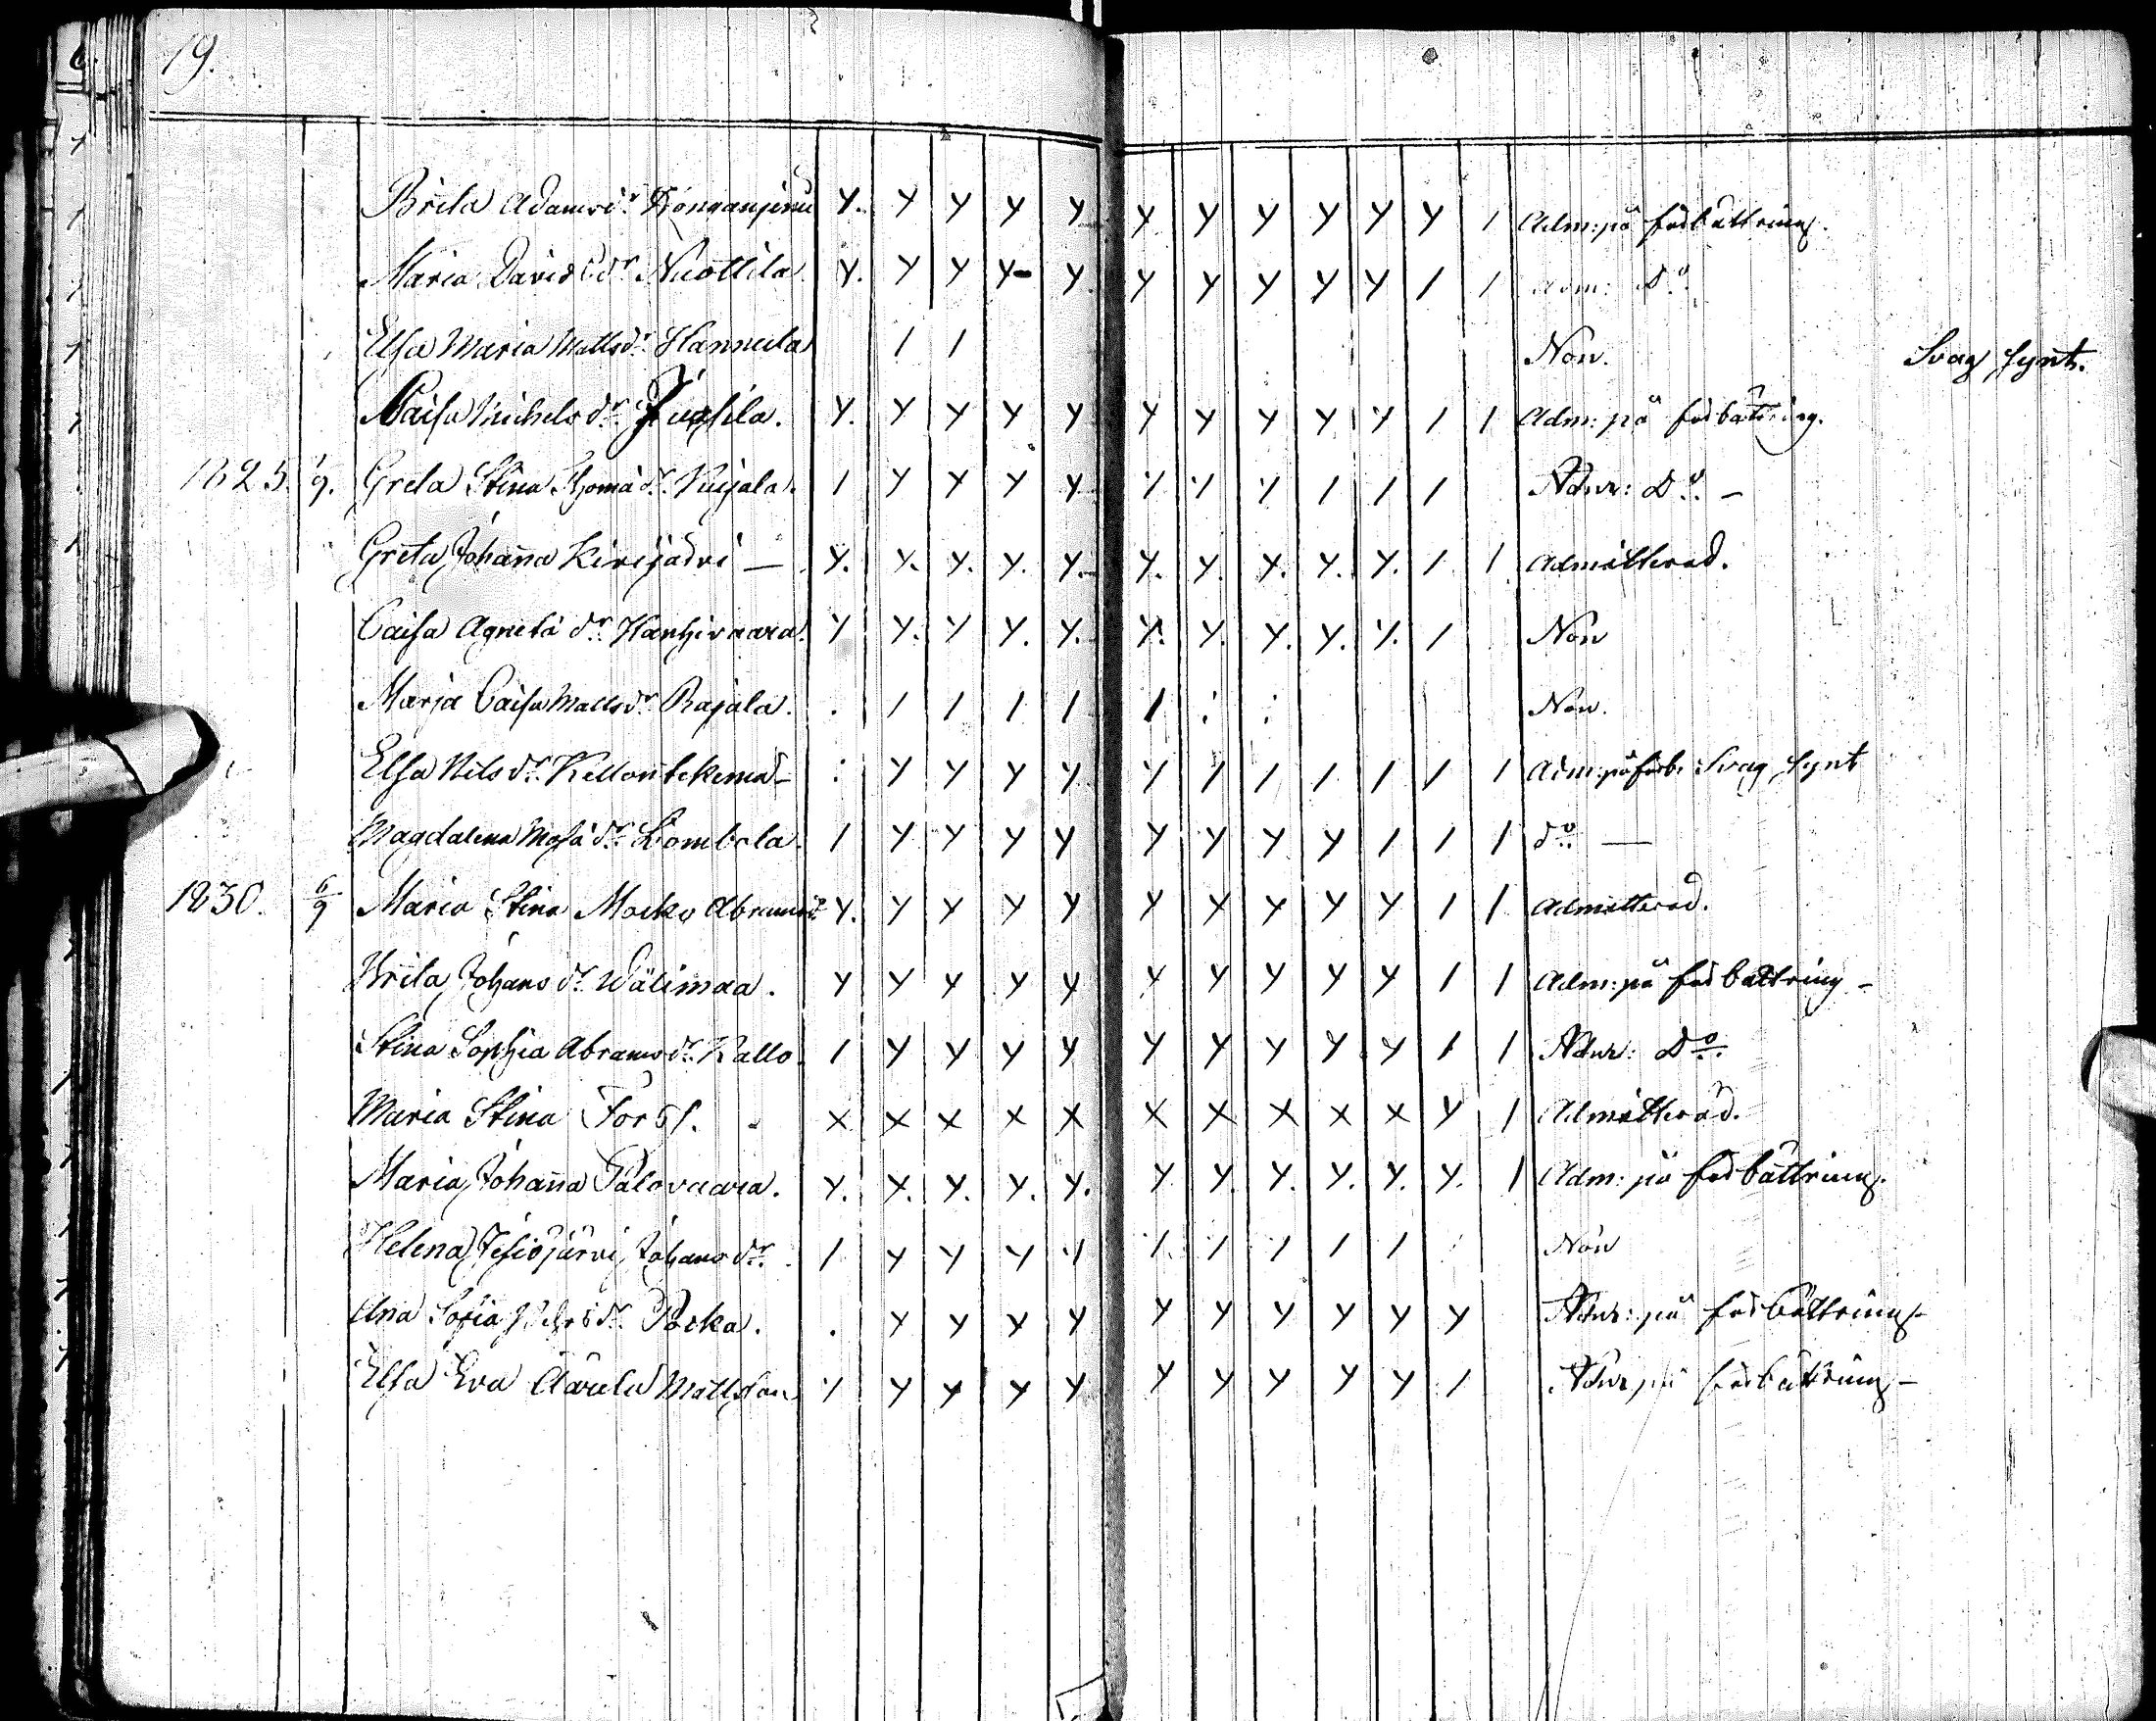 19.
Brita Adams dr Könganjemi y. y y y y y y y y y y 1 Adm: på förbättring.
Maria Davids dr Nuottila. y. y y y- y. y y y y y 1 1 Adm: Do
Elsa Maria Matts dr Hannula 1 1 Non. Svag synt.
Caisa Michels dr y. y y y y y y y y y 1 1 Adm: på förbättring.
1825. Greta Stina Thoma dr Kujala. 1 y y y y y y y 1 1 1 Adm: Do. –
Greta Johanna Kirijärvi — y. y. y. y. y. y. y. y. y. y. 1. 1. Admitterad.
Caisa Agneta dr Hanhivaara. y y. y y. y. y. y. y. y. y. 1 Non
Maria Caisa Matts dr Rajala. . 1 1 1 1 1 : : Non.
Elsa Nils dr Kellontekemä – : y y y y y 1 1 1 1 1 1 Adm: på förb. Svag synt
Magdalena Mosa dr Lombola. 1 y y y y y y y y 1 1 1 do —
1830. 6/9 Maria Stina Mocko Abramsd. y. y y y y y y y y y 1 1 Admitterad.
Brita Johans dr Wälimaa. y y y y y y y y y y 1 1 Adm: på förbättring –
Stina Sophia Abrams dr Kallo. 1 y y y y y y y y y 1 1 Adm: Do.
Maria Stina Forss. x x x x x x x x x x y 1 Admitterad.
Maria Johanna Palovaara. y. y. y. y. y. y. y. y. y. y. y. 1 Adm: på förbättring.
Helena Jesiöjärvi Johans dr. 1 y y y y 1 1 1 1 1 Non
Ana Sofia dr Pocka. . y y y y y y y y y y Adm: på förbättring –
Elsa Eva Äärelä Matts y y y y y y y y y y 1 Adm på förbättring –